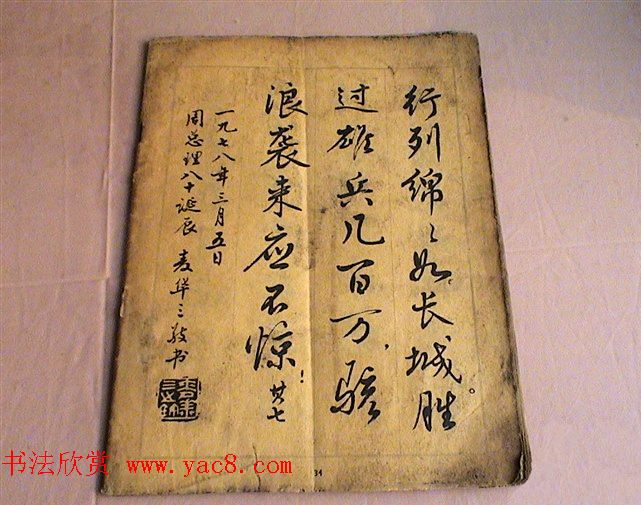 行列绵〻如长城。胜
过雄兵几百万，骇
浪袭来应不惊！其七
一九七八年三月五日
周总理八十诞辰 麦华三敬书
书法欣赏 www.yac8.com